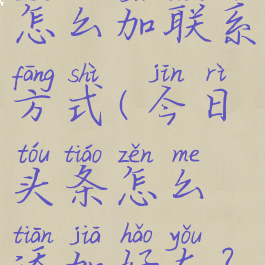 怎么加联系
fāng shì jīn rì
方式(今日
tóu tiáo zěn me
头条怎么
tiān jiā hǎo yǒu
添加好友?